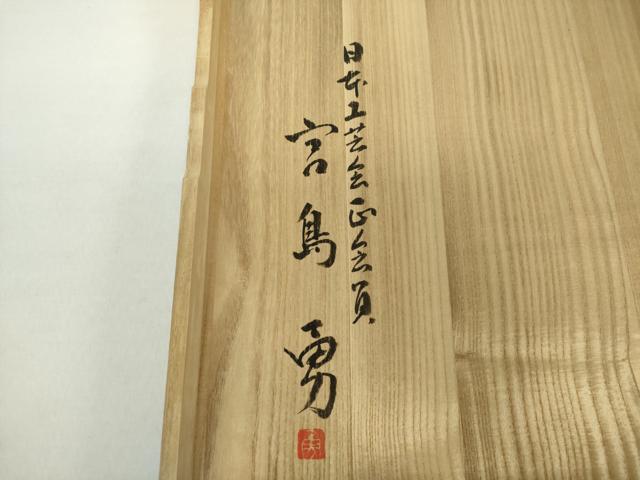 日本工芸会正会員
宮島勇
勇